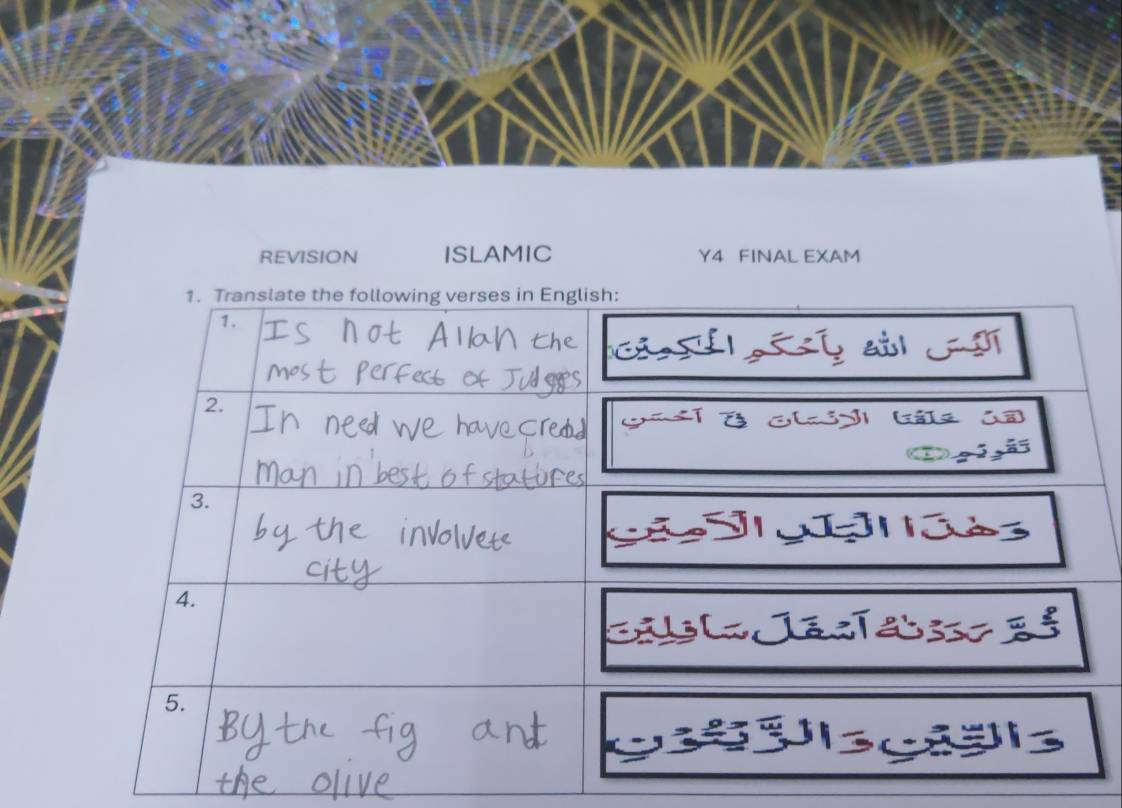 REVISION ISLAMIC Y4 FINAL EXAM
1. Translate the following verses in English:
1. Is not Allah the
most perfect of Judges
اَلَيْسَ اللّٰهُ بِاَحْكَمِ الْحٰكِمِيْنَ
2. In need we have
man in best of statures
لَقَدْ خَلَقْنَا الْاِنْسَانَ فِيْٓ اَحْسَنِ
تَقْوِيْمٍ
3. by the involvete
city
وَهٰذَا الْبَلَدِ الْاَمِيْنِ
4.
ثُمَّ رَدَدْنٰهُ اَسْفَلَ سَافِلِيْنَ
5. By the fig and
the olive
وَالتِّيْنِ وَالزَّيْتُوْنِ